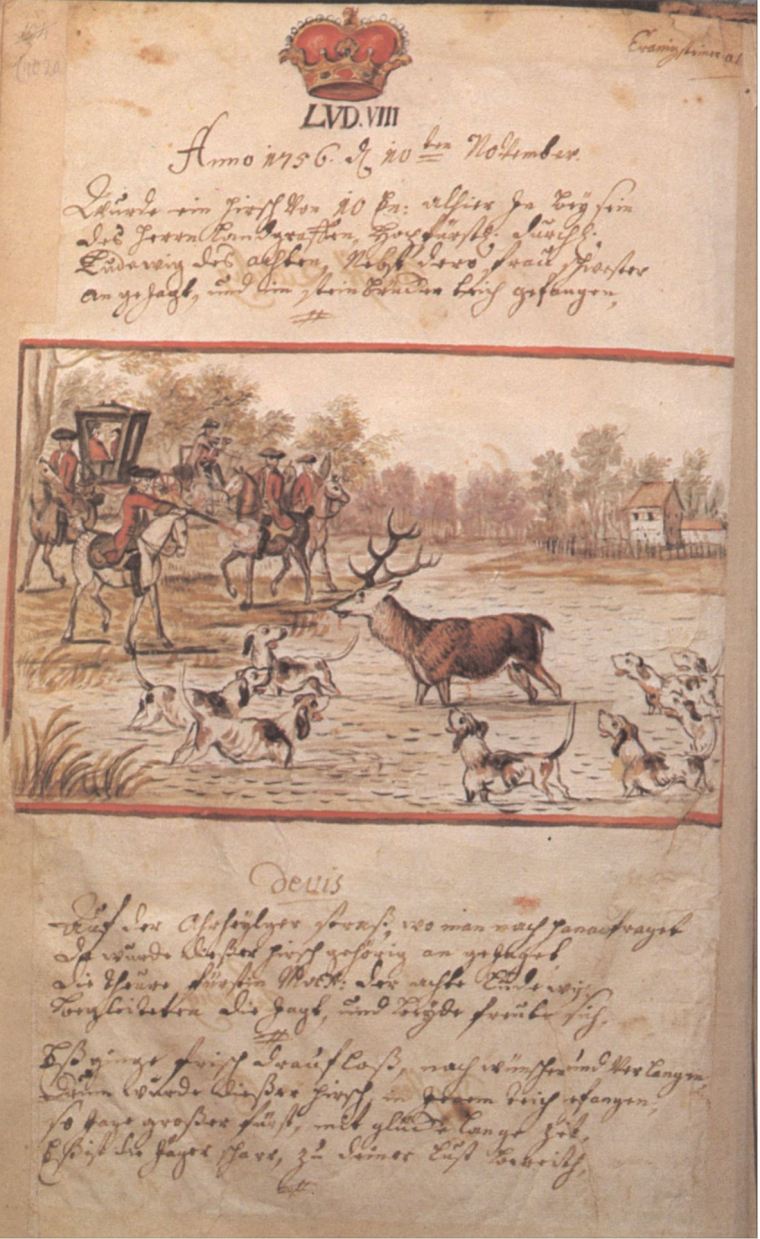 LVD.VIII
Anno 1756. d 10ten November.
Wurde ein hirsch Von 10 En: alhier In beÿsein
des Herrn Landgraffen, Hochfürstl: Durchl:
Ludewig des achten, Nebst dero frau schwester
an gejagt, und im steinbrücker teich gefangen,
Devis
Auf der straß, wo man nach hanau fraget
Da wurde dießer hirsch gehörig an gejaget
die theure fürstin der achte Ludewig
begleiteten die Jagt, und beÿde freute sich,
Eß ginge frisch drauf loß, nach wünschen und Verlangen,
Drum wurde dießer hirsch, in teich gefangen,
so Jage großer fürst, mit glück lange Zeit,
Eß ist die Jäger schaar, zu deiner Lust bereith,